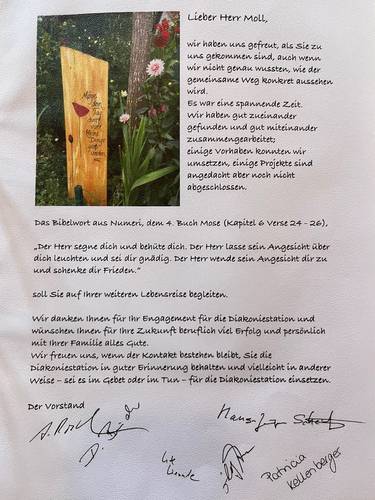 Lieber Herr Moll,
wir haben uns gefreut, als Sie zu
uns gekommen sind, auch wenn
wir nicht genau wussten, wie der
gemeinsame Weg konkret aussehen
wird.
Es war eine spannende Zeit.
Wir haben gut zueinander
gefunden und gut miteinander
zusammengearbeitet;
einige Vorhaben konnten wir
umsetzen, einige Projekte sind
angedacht aber noch nicht
abgeschlossen.
Das Bibelwort aus Numeri, dem 4. Buch Mose (Kapitel 6 Verse 24 - 26),
„Der Herr segne dich und behüte dich. Der Herr lasse sein Angesicht über
dich leuchten und sei dir gnädig. Der Herr wende sein Angesicht dir zu
und schenke dir Frieden.“
soll Sie auf Ihrer weiteren Lebensreise begleiten.
Wir danken Ihnen für Ihr Engagement für die Diakoniestation und
wünschen Ihnen für Ihre Zukunft beruflich viel Erfolg und persönlich
mit Ihrer Familie alles Gute.
Wir freuen uns, wenn der Kontakt bestehen bleibt, Sie die
Diakoniestation in guter Erinnerung behalten und vielleicht in anderer
Weise – sei es im Gebet oder im Tun – für die Diakoniestation einsetzen.
Der Vorstand
Patricia
Kellenberger